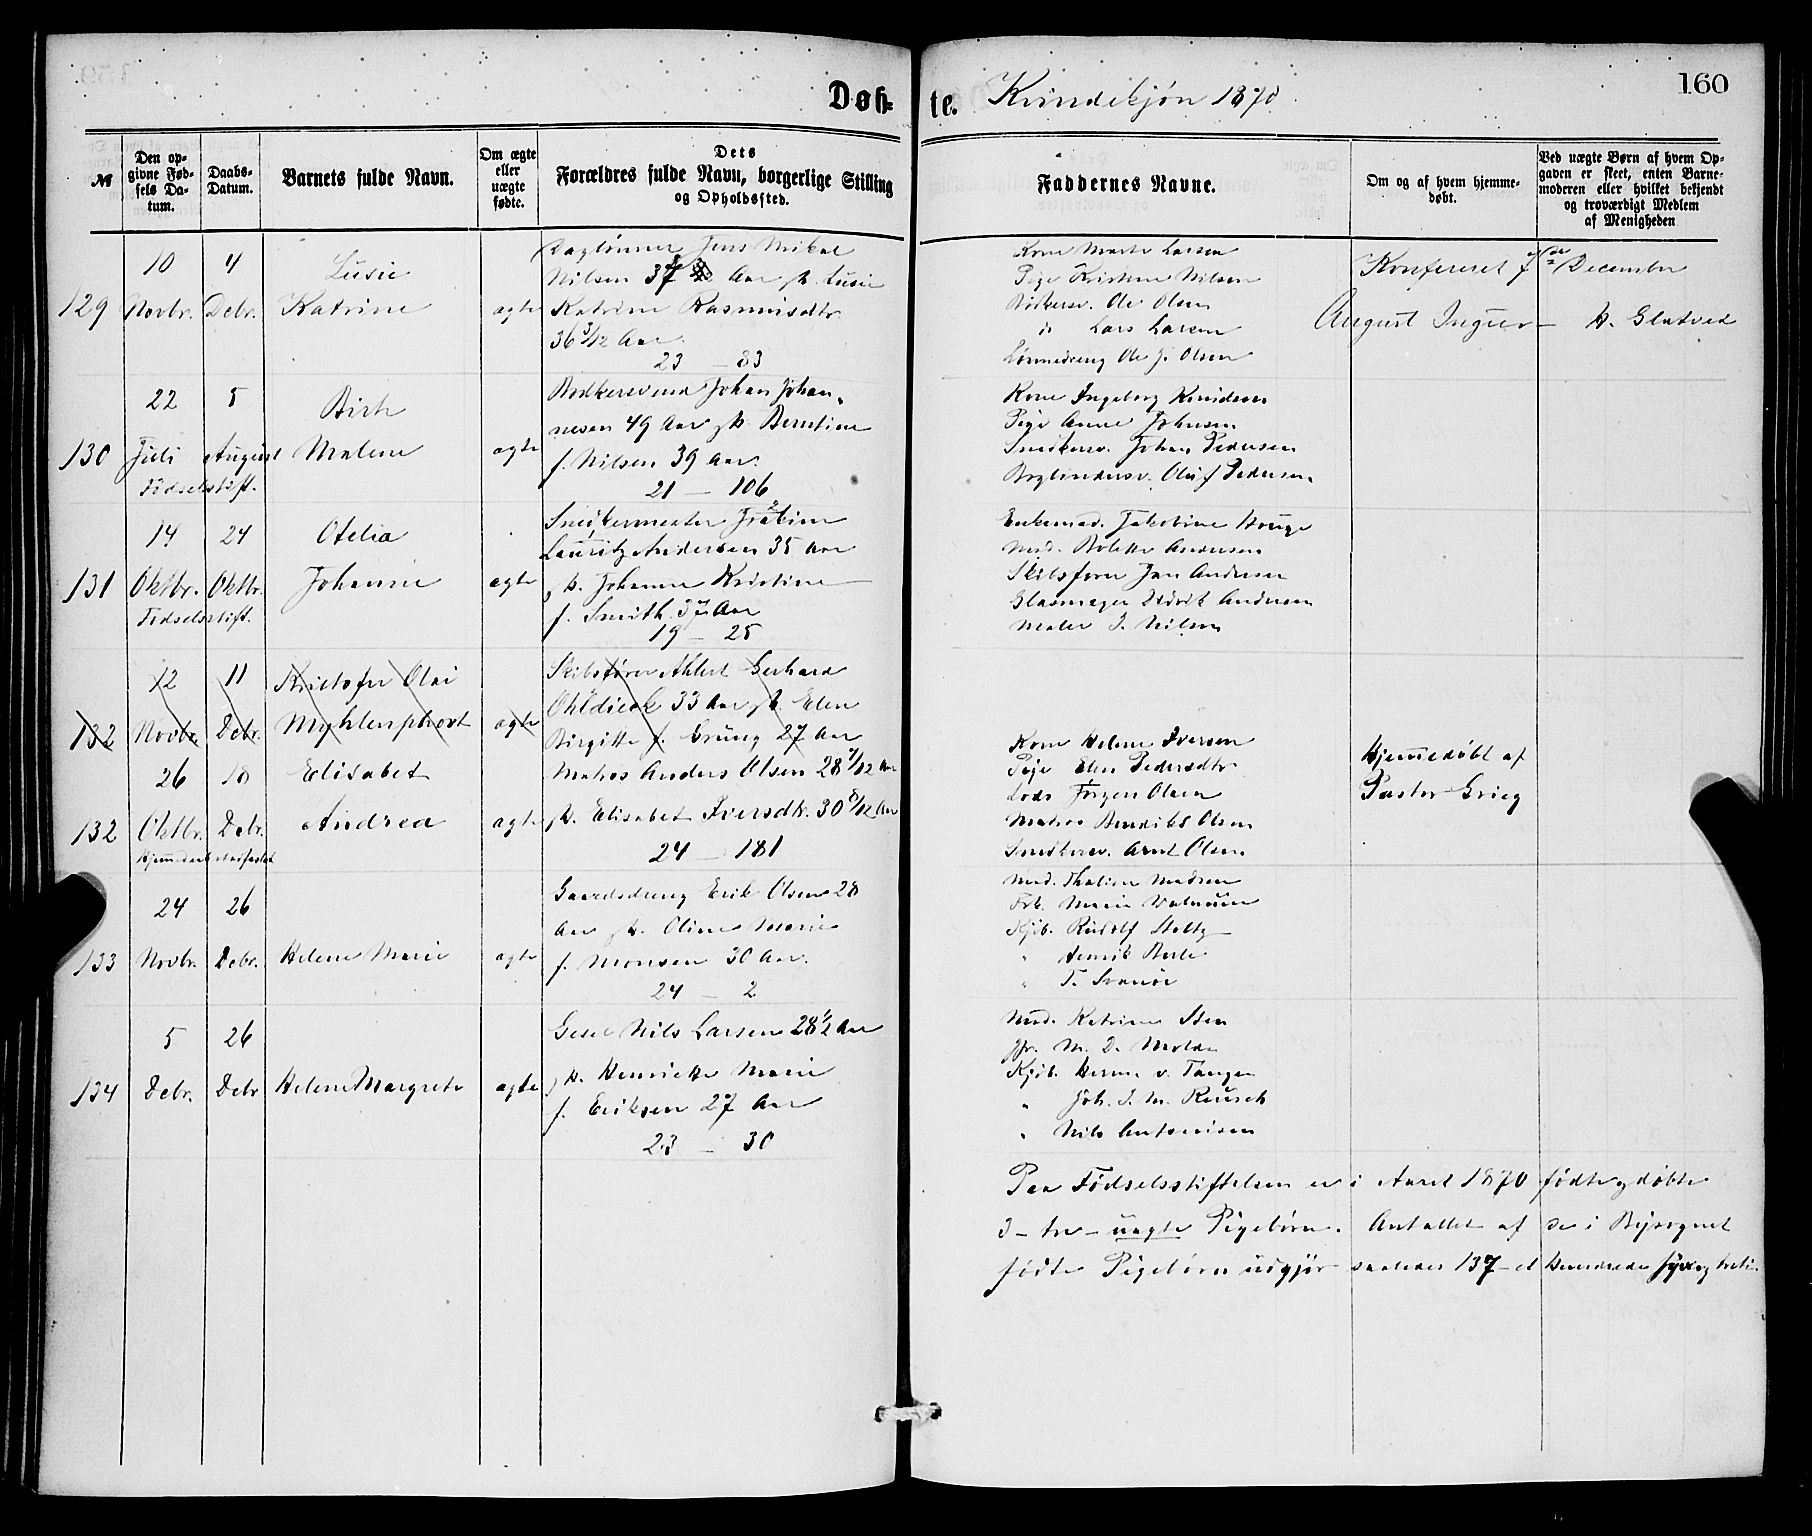 160
Døb- te. Kvindekjøn 1870
№
Den opgivne Fødsels Datum.
Daabs-Datum.
Barnets fulde Navn.
Om ægte eller uægte fødte.
Dets Forældres fulde Navn, borgerlige Stilling og Opholdssted.
Faddernes Navne.
Om og af hvem hjemmedøbt.
Ved uægte Børn af hvem Opgaven er skeet, enten Barnemoderen eller hvilket bekjendt og troværdigt Medlem af Menigheden
129
10 Novbr.
4 Debr.
Lusie Katrine
ægte
Daglønner Jens Mikal
Nilsen 37 Aar h. Lusie
Katrine Rasmusdtr
36 3/12 Aar.
23 — 83
Kone Marte Larsen
Pige Kristine Nilsen
Bødkersv. Ole Olsen
" Lars Larsen
Ole J. Olsen
Konfereret December
August H.
130
22 Juli
5 August
Fødselsstift.
Malene
ægte
Bødkersvend Johan Johan-
nesen 49 Aar h. Berntine
f. Nilsen 39 Aar.
21 — 106
Kone Ingeborg Knudsen
Pige Anne Johnsen
Snedkersv. Johan Pedersen
Oluf Pedersen
131
14 Oktbr.
24 Oktbr.
Fødselsstift.
Otelia Johanne
ægte
Snedkermester
Lauritz Andersen 35 Aar
h. Johanne Kristine
f. Smith 37 Aar
19 — 25
Enkemad. Jakobine Houge
Mad. Bolette Andersen
Skibsfører Jan Andersen
Glasmager Andersen
Maler J. Nilsen
132
12 Novbr.
11 Debr.
Kristofer Olai
ægte
Skibsfører Ahlert Gerhard
33 Aar h. Elen
Birgitte f. 27 Aar
132
26 Oktbr.
18 Debr.
Elisabet
Andrea
ægte
Matros Anders Olsen 28 7/12 Aar
h. Elisabet Iversdtr. 30 8/12 Aar
24 — 181
Kone Helene Iversen
Pige Elen Pedersdtr
Lods Jørgen Olsen
Matros Bendiks Olsen
Snedkersv. Arnt Olsen
Hjemmedøbt af
Pastor Grieg
133
24 Novbr.
26 Debr.
Helene Marie
ægte
Gaardsdreng Erik Olsen 28
Aar h. Oline Marie
f. Monsen 30 Aar.
24 — 2
Mad. Thaline Madsen
Frk. Marie
Kjøb. Rudolf Stoltz
" Henrik
" T. Svanøe
134
5 Debr.
26 Debr
Helene Margrete
ægte
Nils Larsen 28 1/2 Aar
h. Henriette Marie
f. Eriksen 27 Aar
23 — 30
Mad. Katrine Sten
Jfr. M. D. Molde
Kjøb. Herm. v. Tangen
" Joh. J. M. Reusch
" Nils Antonisen
Paa Fødselsstiftelsen er i Aaret 1870 fødte og døbte
3 - tre - uægte Pigebørn. Antallet af de i Bysognet
fødte Pigebørn udgjør saaledes 137 - et Hundrede syv og treti.